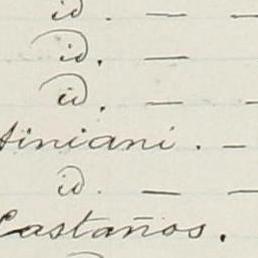 id. — —
id. —
id. — —
tiniani. —
id. — —
Castaños.